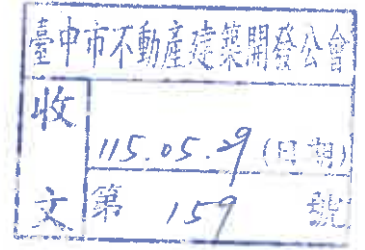 臺中市不動產建築開發公會
收文
115.05.29(日期)
第 159 號